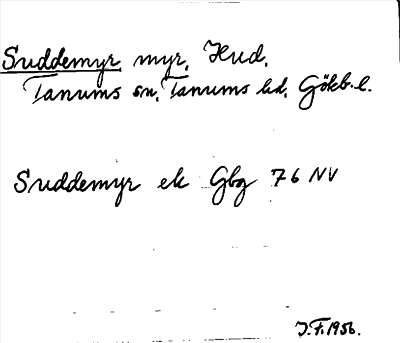 Suddemyr myr, Hud,
Tanums sn, Tanums hd, Gökb. l.
Suddemyr ek Gbg 76 NV
J.F. 1956.